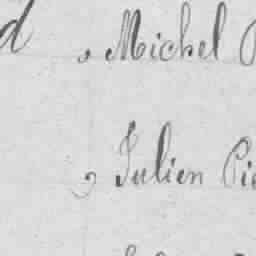 d , Michel
, Julien